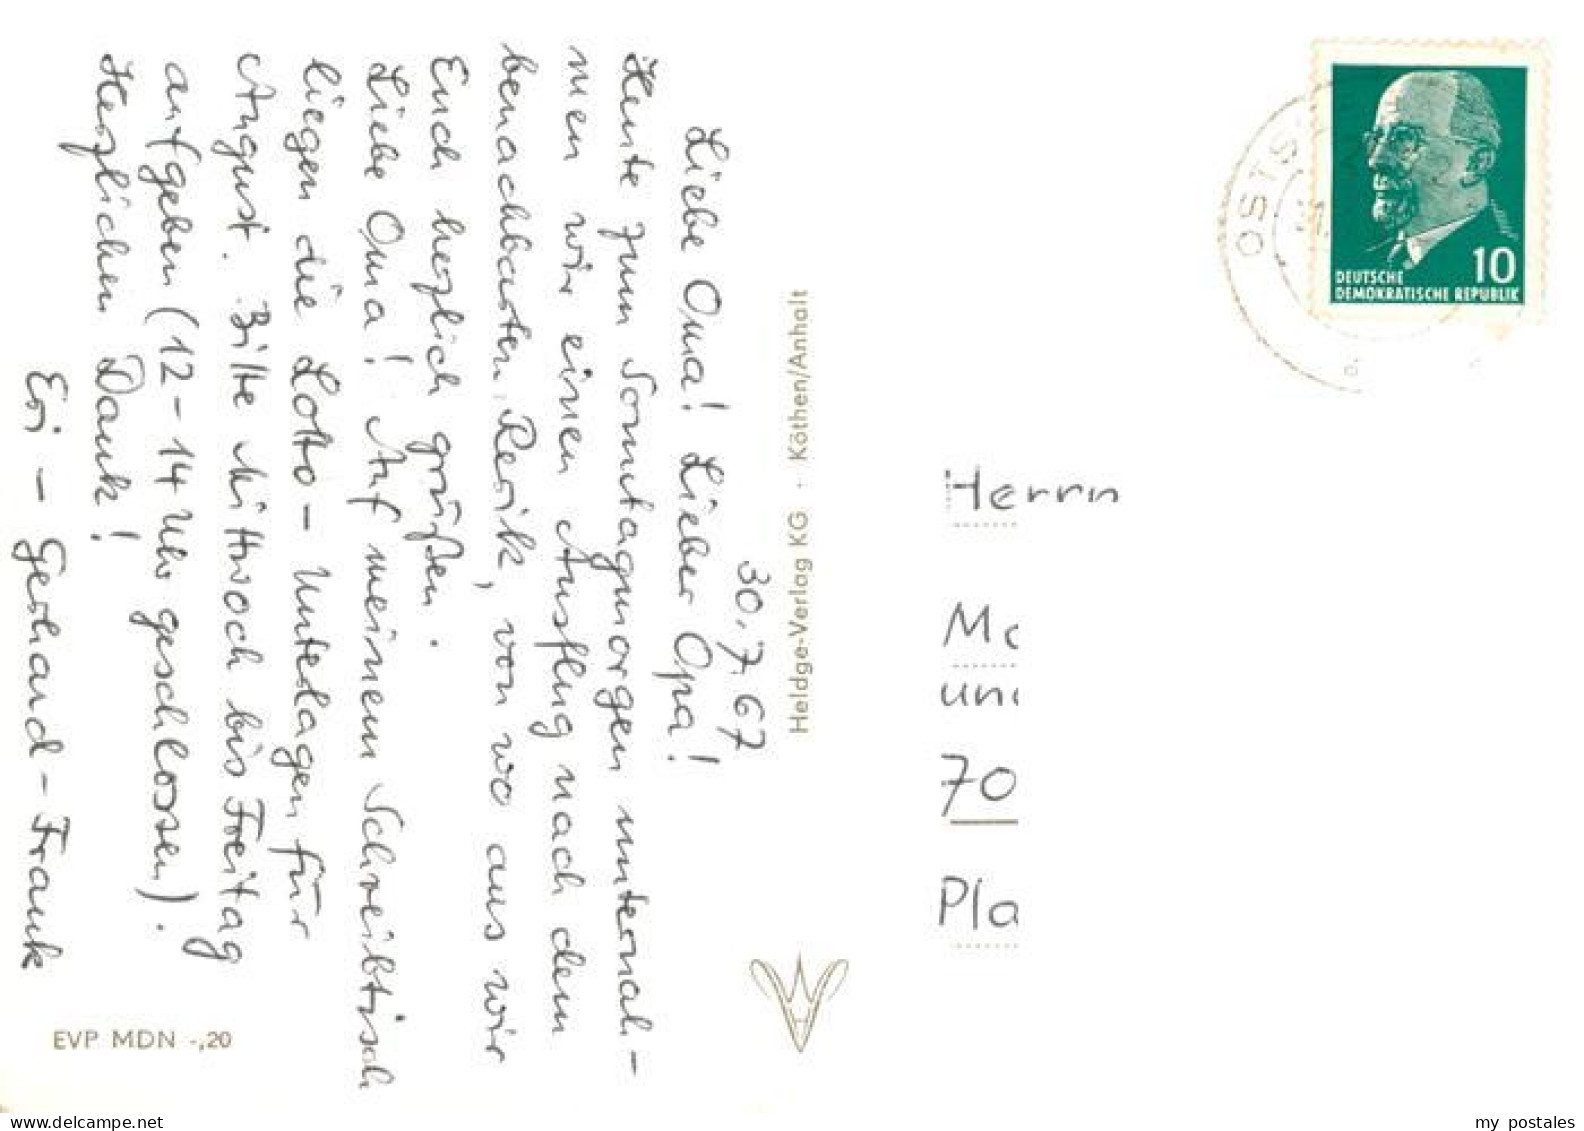 30.7.67
Liebe Oma! Lieber Opa!
Heute zum Sonntagmorgen unternah-
men wir einen Ausflug nach dem
benachbarten Rerik, von wo aus wir
Euch herzlich grüßen.
Liebe Oma! Auf meinem Schreibtisch
liegen die Lotto-Unterlagen für
August. Bitte Mittwoch bis Freitag
aufgeben (12-14 Uhr geschlossen).
Herzlichen Dank!
Eri - Gerhard - Frank
EVP MDN -,20
Heldge-Verlag KG · Köthen/Anhalt
OSTS
10
DEUTSCHE
DEMOKRATISCHE REPUBLIK
Herrn
Ma
und
70
Pla
my postales